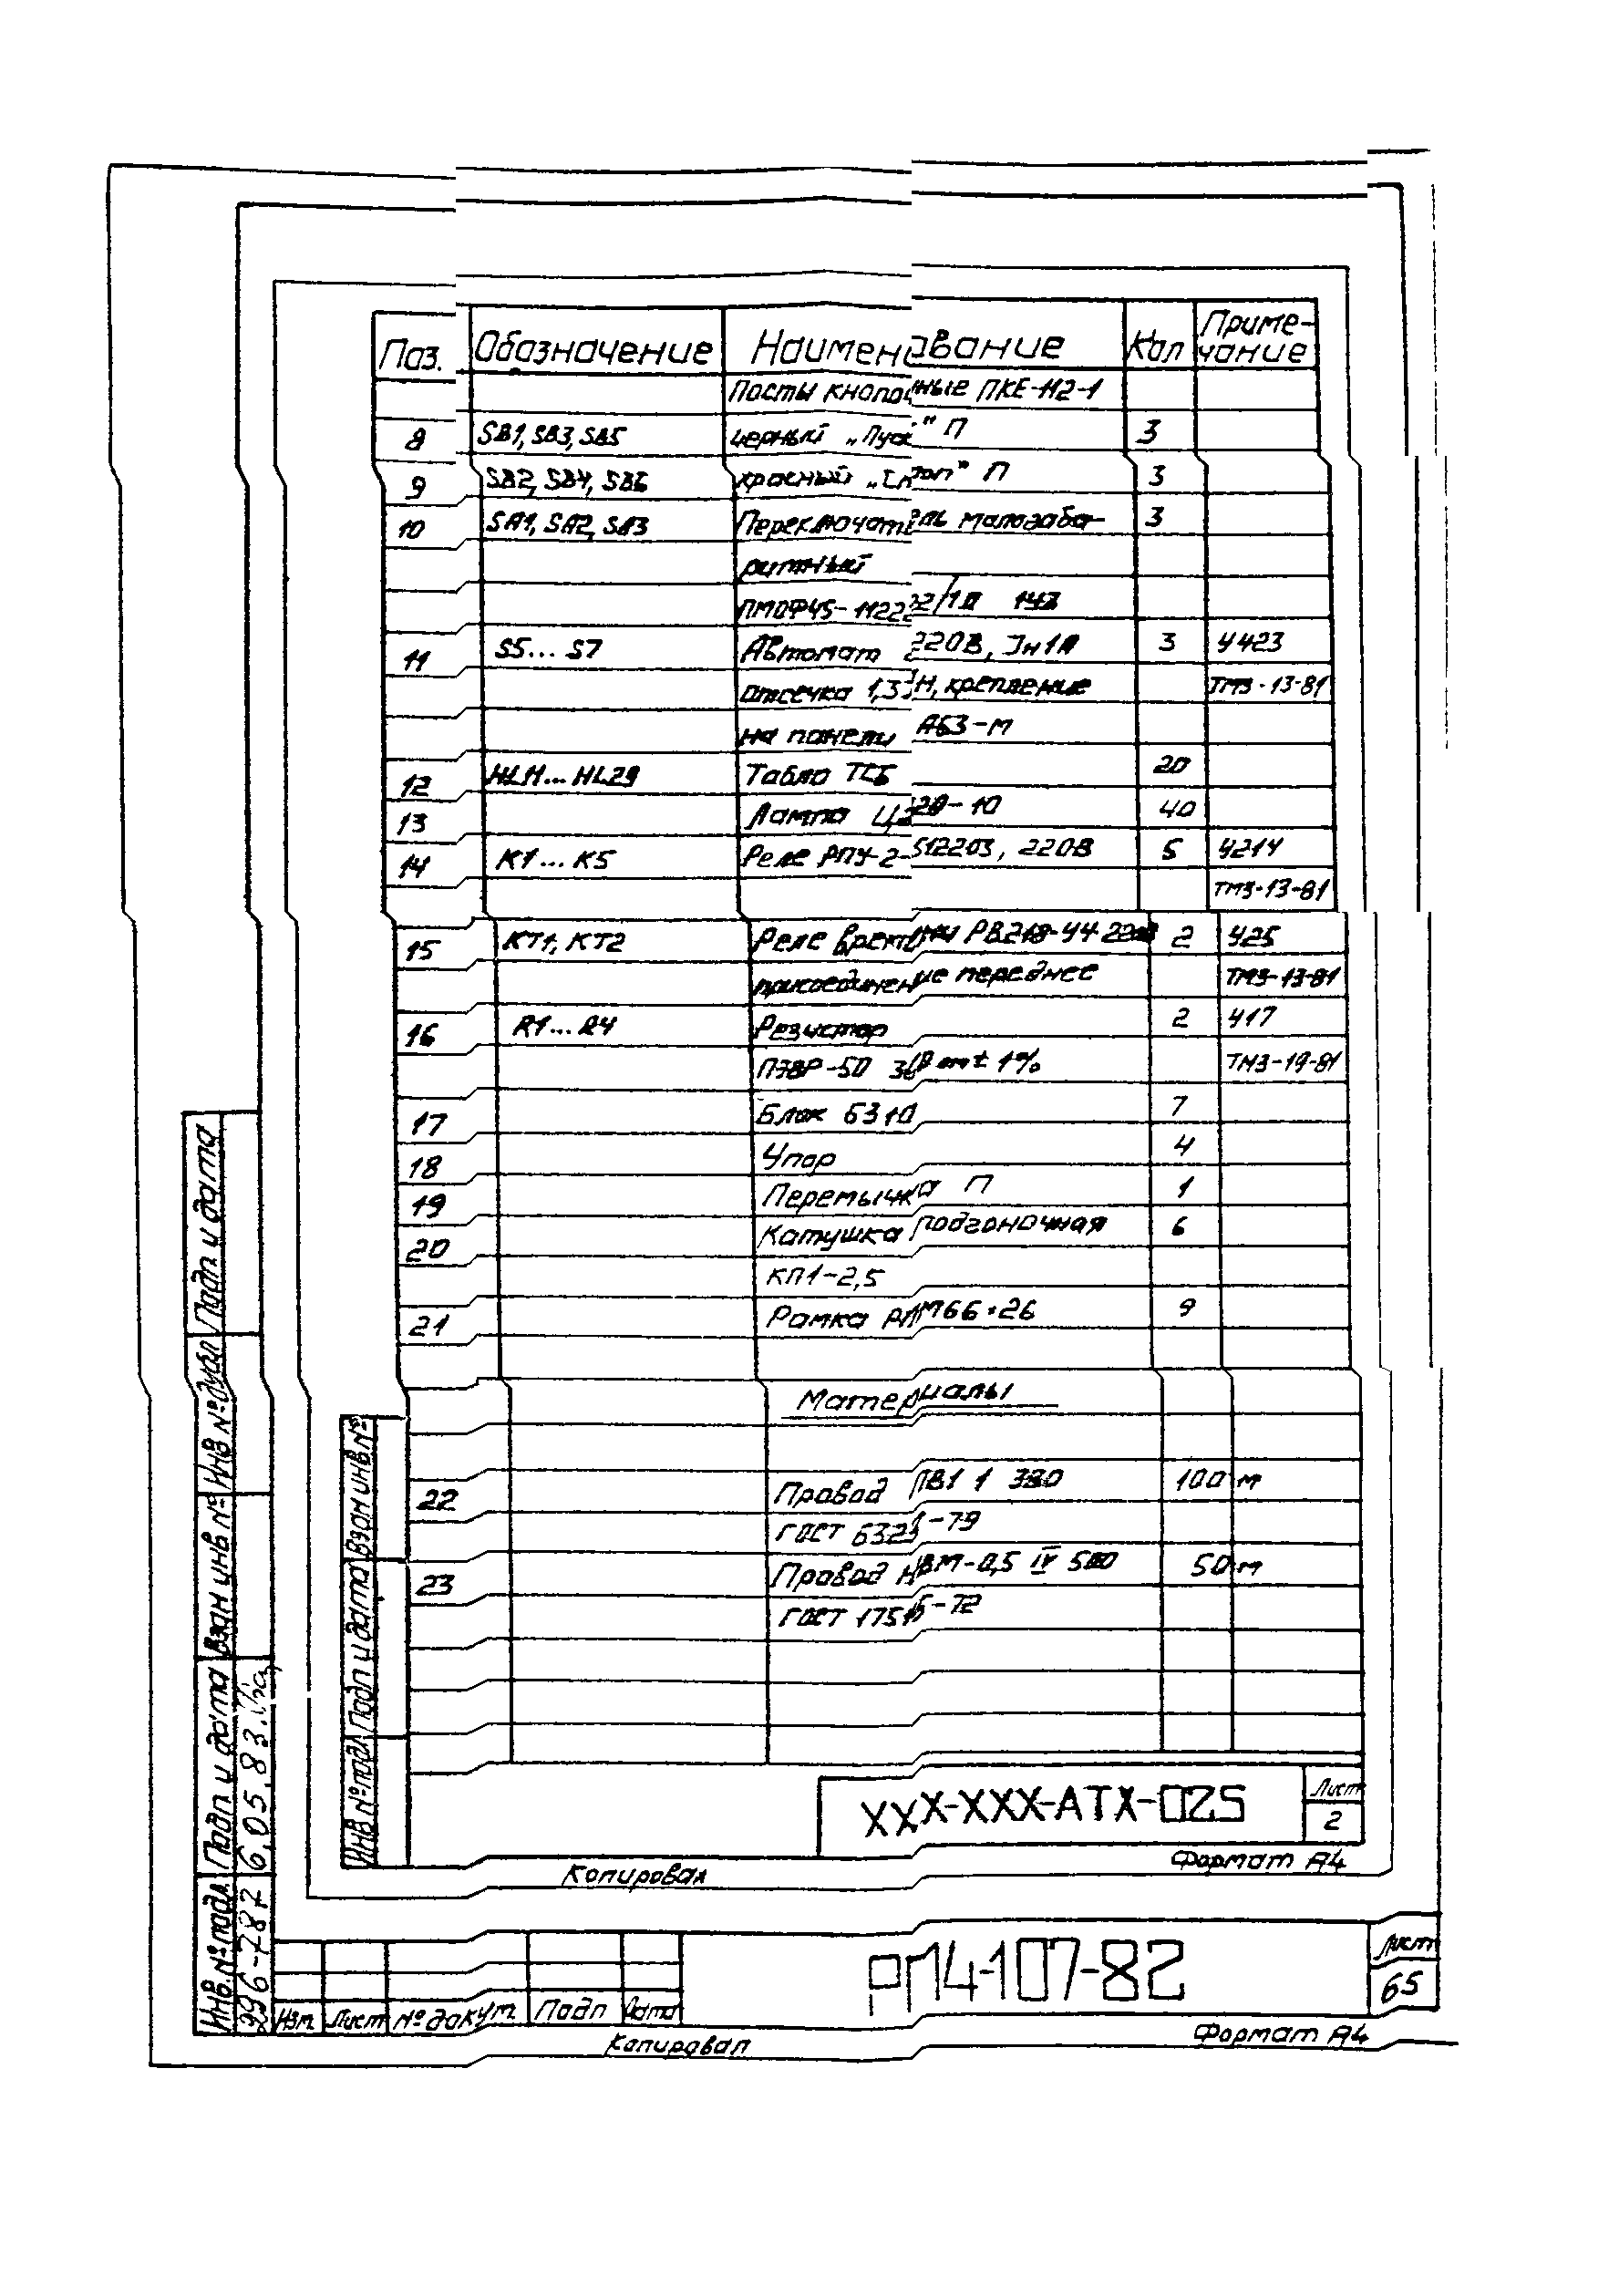 Поз. Обозначение Наименование Кол Приме-
чание
Посты кнопочные ПКЕ-112-1
8 SB1, SB3, SB5 черный „Пуск" П 3
9 SB2, SB4, SB6 красный „Стоп" П 3
10 SA1, SA2, SA3 Переключатель малогаба- 3
ритный
ПМОФ45-112222/1Д
11 S5... S7 Автомат 220В, Iн1А 3 У423
отсечка 1,3Iн, крепление ТМ3-13-81
на панели А63-м
12 HL11... HL29 Табло ТСБ 20
13 Лампа 220-10 40
14 K1... K5 Реле РПУ-2- 512203, 220В 5 У214
ТМ3-13-81
15 KT1, KT2 Реле времени РВ218-У4 2 У25
присоединение переднее ТМ3-13-81
16 R1... R4 Резистор 2 У17
ПЭВР-50 ± 1% ТМ3-19-81
17 Блок Б310 7
18 Упор 4
19 Перемычка П 1
20 Катушка подгоночная 6
КП1-2,5
21 Рамка РПМ66×26 9
Материалы
22 Провод ПВ1 1 380 100 м
ГОСТ 6323-79
23 Провод НВМ-0,5 IV 500 50 м
ГОСТ 17515-72
XXX-XXX-АТХ-025 Лист
2
Копировал Формат А4
Инв № подл Подп и дата Взам инв №
РМ4-107-82 Лист
65
Изм Лист № докум. Подп Дата
Копировал Формат А4
Инв. № подл. Подп и дата Взам инв № Инв № дубл Подп и дата
6.05.83